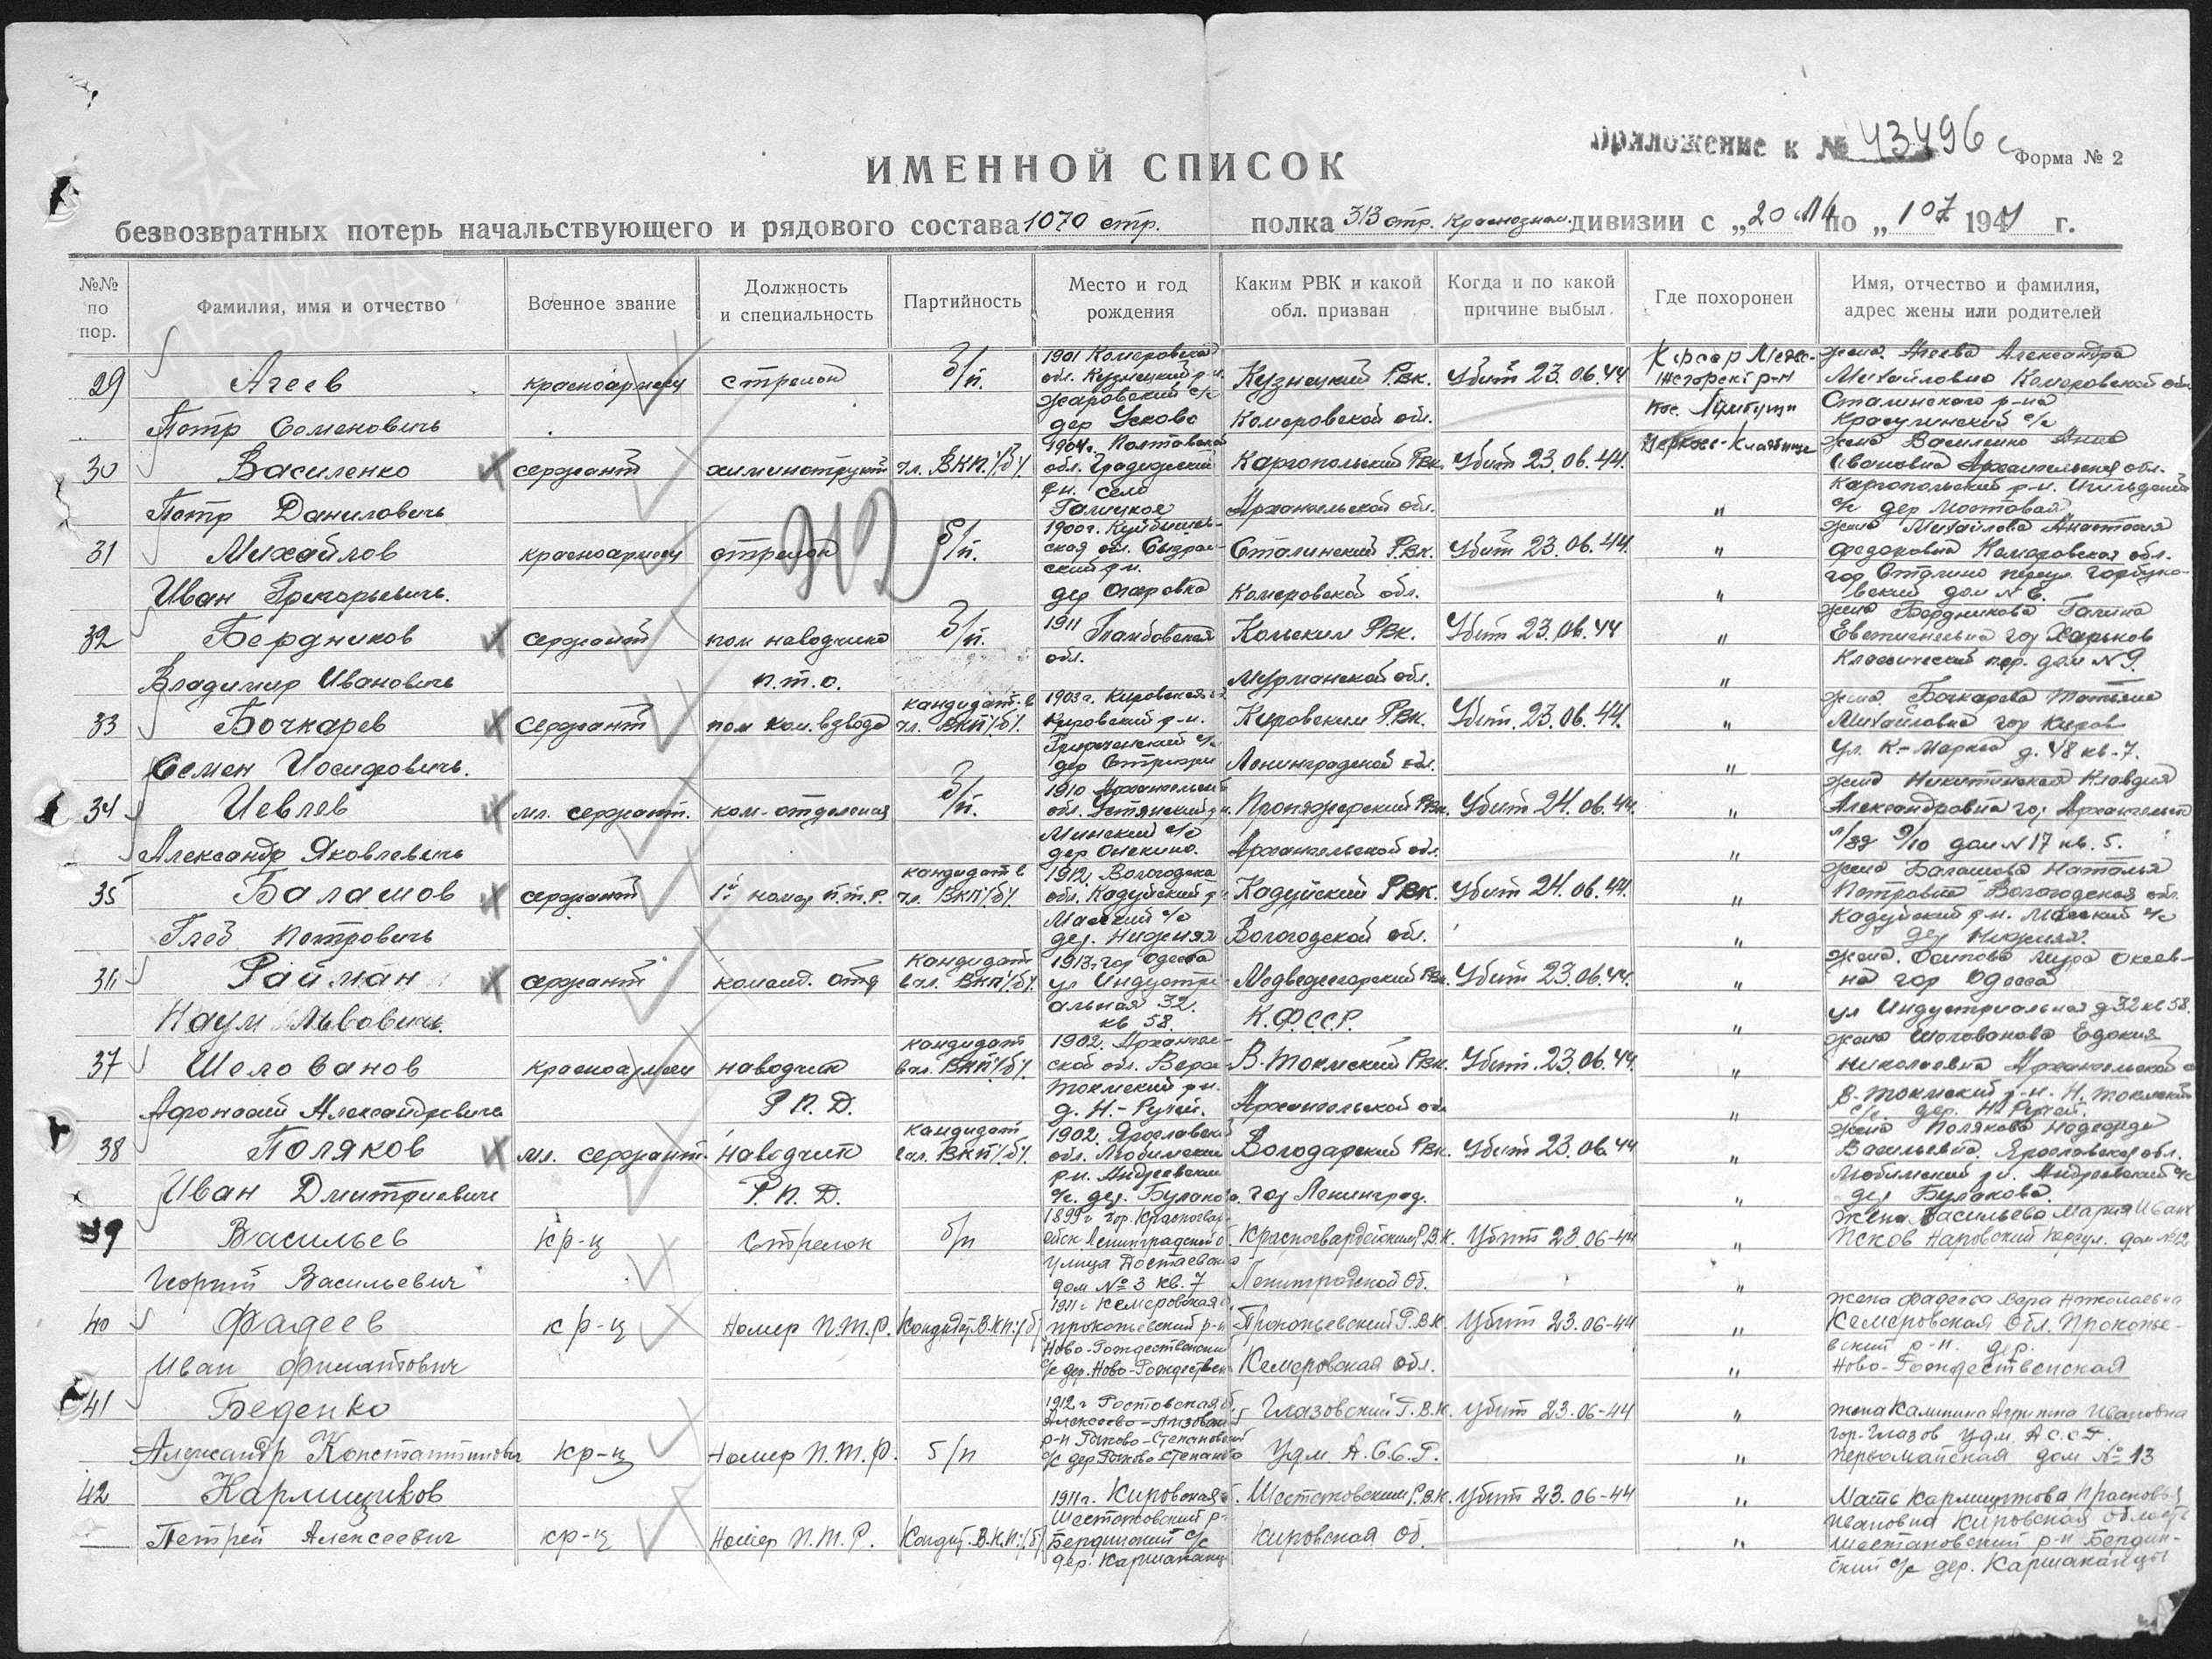 Приложение к № 43496с
Форма № 2
ИМЕННОЙ СПИСОК
безвозвратных потерь начальствующего и рядового состава 1070 стр. полка 313 стр. Краснознам. дивизии с „20 по „1 07 1944 г.
№№ по пор.
Фамилия, имя и отчество
Военное звание
Должность и специальность
Партийность
Место и год рождения
Каким РВК и какой обл. призван
Когда и по какой причине выбыл
Где похоронен
Имя, отчество и фамилия, адрес жены или родителей
29 Агеев красноармеец стрелок б/п. 1901 Кемеровская обл. Кузнецкий р-н. Кузнецкий Рвк. Убит 23.06.44 жена Агеева Александра
Петр Семенович дер Усково Кемеровской обл. Михайловна Кемеровской обл. Сталинского р-на с/с
30 Василенко сержант химинструкт чл. ВКП/б/ 1904г. Полтавская обл. Градижский р-н. село Каргопольский Рвк Убит 23.06.44. жена Василенко Анна
Петр Данилович Галицкое Архангельской обл. " Ивановна Архангельская обл. Каргопольский р-н. с/с дер Мостовая
31 Михайлов красноармеец стрелок б/п. 1900г. Куйбышевская обл. Сызранский р-н. Сталинский Рвк. Убит 23.06.44. " жена Михайлова Анастасия
Иван Григорьевич. дер Кемеровской обл. " Федоровна Кемеровская обл. гор Сталино дом № 6.
312
32 Бердников сержант пом наводчика б/п. 1911 Тамбовская обл. Кольским Рвк. Убит 23.06.44 " жена Бердникова Галина
Владимир Иванович п.т.о. Мурманской обл. " Евгеньевна гор Харьков Классический пер. дом № 9.
33 Бочкарев сержант пом ком. взвода кандидат в чл. ВКП/б/ 1903г. Кировская Кировский р-н. Кировским Рвк. Убит. 23.06.44. " жена Бочкарева Татьяна
Семен Иосифович. дер Ленинградской обл. " Михайловна гор Киров ул. К-Маркса д. 48 кв. 7.
34 Иевлев мл. сержант. ком-отделения б/п. 1910 Архангельск обл. Устянский р-н. Рвк. Убит 24.06.44. " жена Клавдия
Александр Яковлевич Минский с/с дер Онекино. Архангельской обл. " Александровна гор Архангельск дом № 17 кв. 5.
35 Балашов сержант 1й номер п.т.р. кандидат в чл. ВКП/б/ 1912 Вологодская обл. Кадуйский р-н Кадуйский Рвк. Убит 24.06.44. " жена Балашова Наталья
Глеб Петрович с/с дер. Нижняя Вологодской обл. " Петровна Вологодская обл. Кадуйский р-н. с/с дер Нижняя.
36 Райман сержант команд. отд кандидат в чл. ВКП/б/ 1913г гор Одесса ул Индустриальная 32. кв 58. Медвежегорский Рвк. Убит 23.06.44. " жена
Наум Львович. К.Ф.С.С.Р. " гор Одесса ул Индустриальная д 32 кв 58.
37 Шелованов красноармеец наводчик кандидат в чл. ВКП/б/ 1902. Архангельской обл. Верхнетоемский р-н. В-Тоемский Рвк. Убит. 23.06.44. " жена Шелованова Евдокия
Афонасий Александрович Р.П.Д. д. Н.-Ручей. Архангельской обл " Николаевна Архангельской о В-Тоемский р-н. Н. Тоемский с/с. дер. Н. Ручей.
38 Поляков мл. сержант. наводчик кандидат в чл. ВКП/б/. 1902. Ярославской обл. Любимский р-н. Андреевский Володарский Рвк. Убит 23.06.44 " жена Полякова Надежда
Иван Дмитриевич Р.П.Д. с/с. дер. Булаково. гор Ленинград. " Васильевна. Ярославская обл. Любимский р-н. Андреевский с/с дер Булаково.
39 Васильев кр-ц Стрелок б/п 1899г гор. Красногвардейск Ленинградской о Красногвардейским Р.В.К. Убит 23.06-44 " Жена Васильева Мария Иван
Георгий Васильевич улица Достаевского дом № 3 кв. 7 Ленинградской Об. " Псков Наровский переул. дом № 12
40 Фадеев кр-ц Номер П.Т.Р. Кандидат В.К.П./б/ 1911г Кемеровская о прокопьевский р-н Прокопьевский Р.В.К. Убит 23.06-44 " Жена Фадеева Вера Николаевна
Иван Филиппович Ново-Рождественский с/с дер. Ново-Рождествен Кемеровская Обл. " Кемеровская Обл. Прокопьевский р-н. дер. Ново-Рождественская
41 Беденко 1912г Ростовская о. Глазовский Р.В.К. Убит 23.06-44 " Жена Калинина Агрипина Ивановна
Александр Константинович кр-ц Номер П.Т.Р. б/п Удм А.С.С.Р. " гор. Глазов Удм. А.С.С.Р. Первомайская дом № 13
42 Кармищиков 1911г. Кировская о. Шестаковским Р.В.К. Убит 23.06-44 " Мать Прасковья
Петрей Алексеевич кр-ц Номер П.Т.Р. Кандид. В.К.П./б/ Шестаковский р- с/с дер. Кировская Об. " Ивановна Кировская область Шестаковский р-н с/с дер.